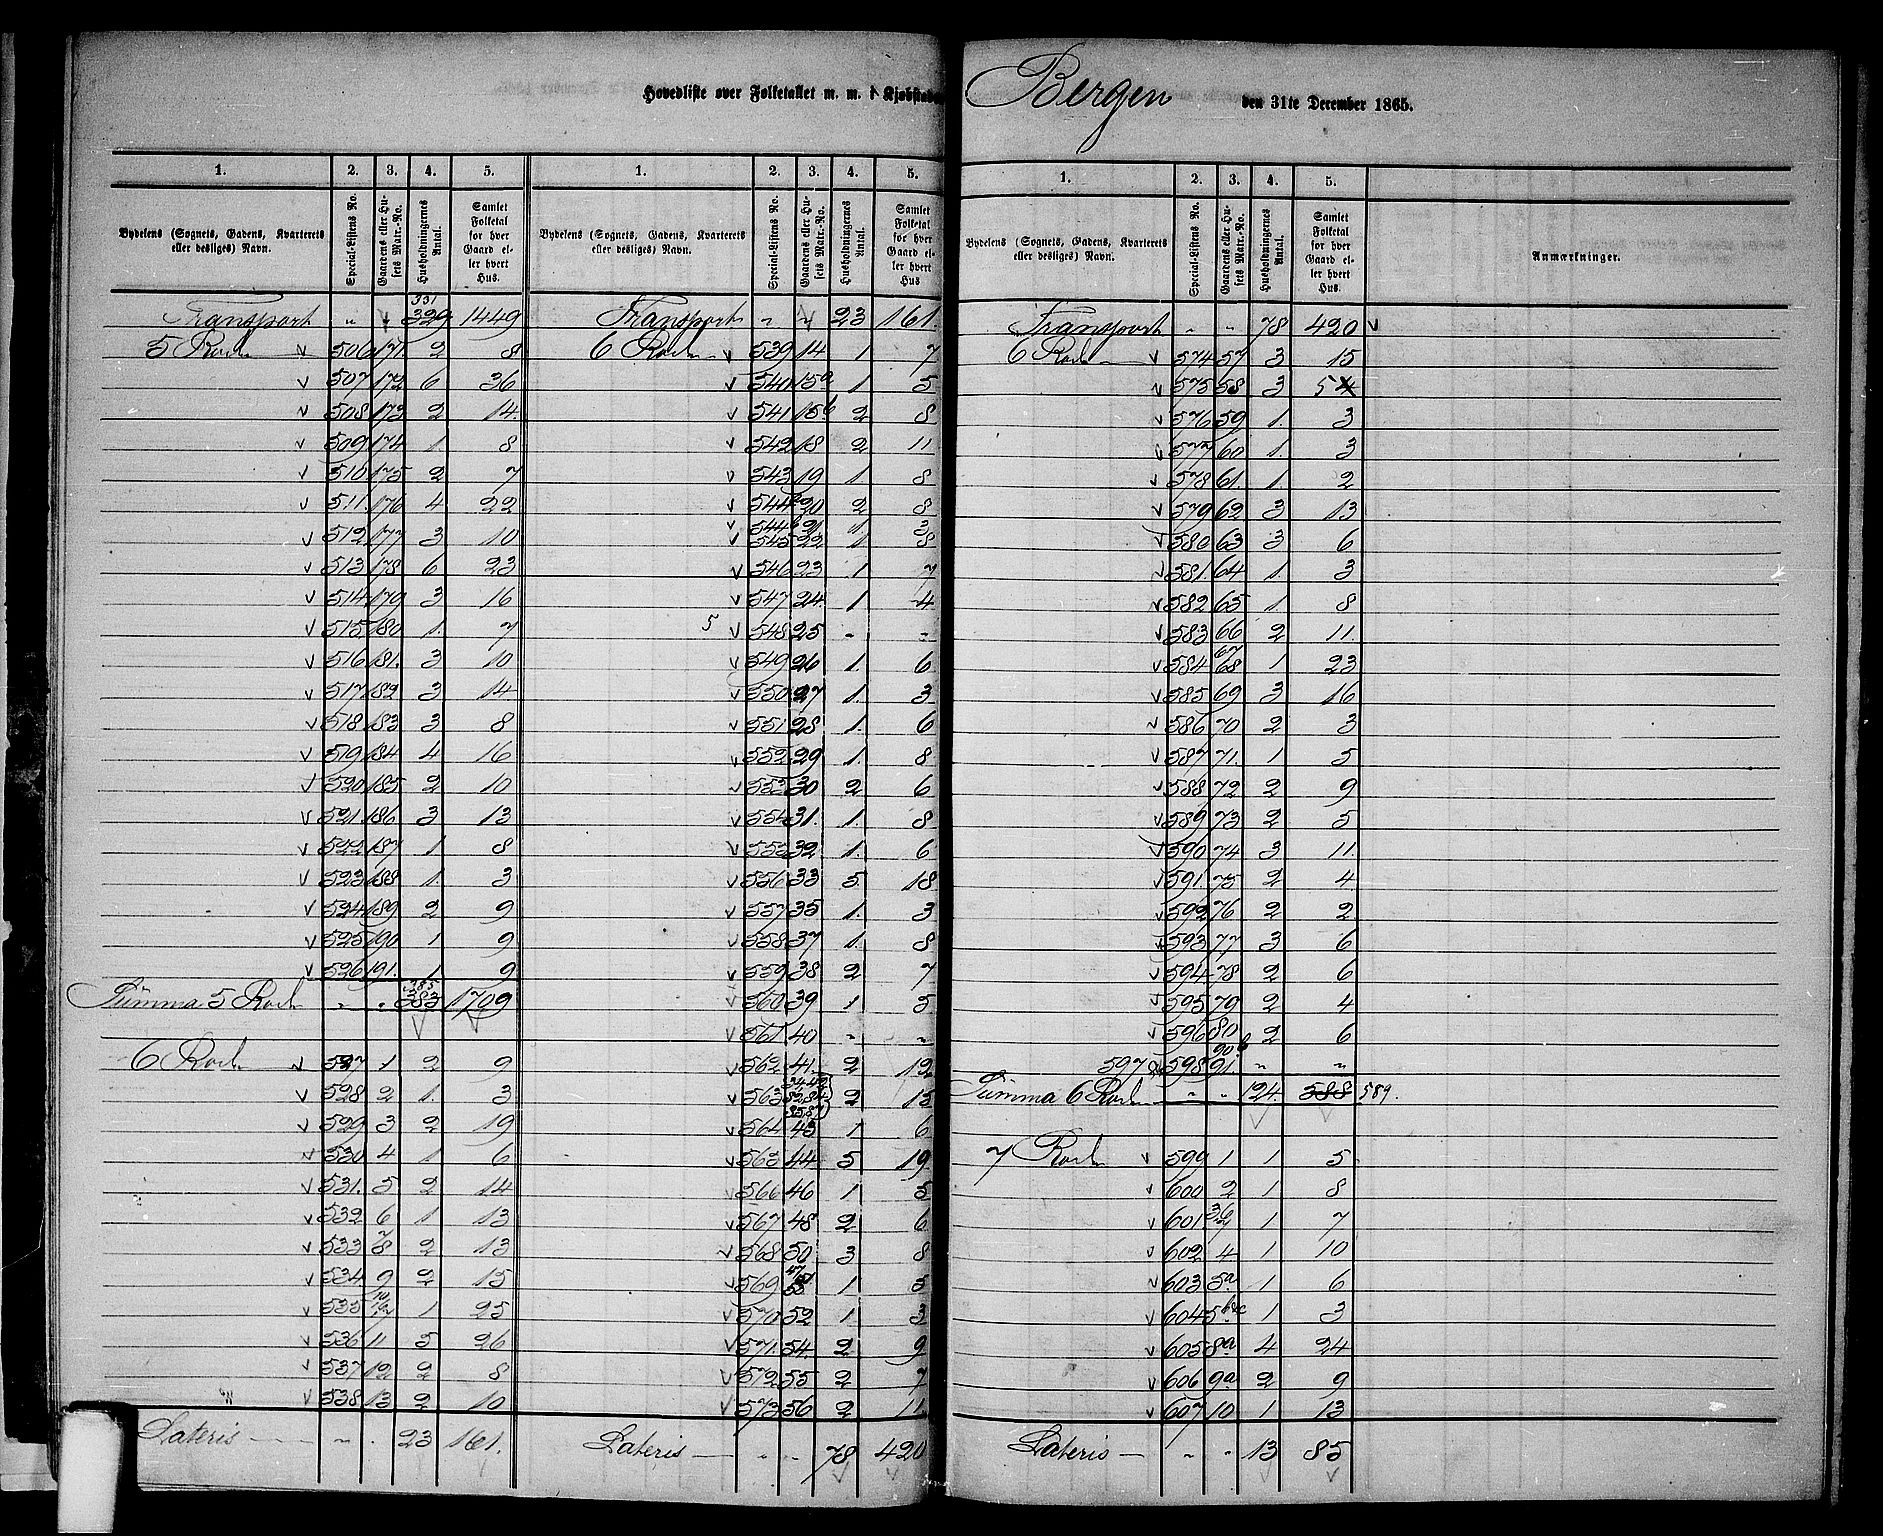 Hovedliste over Folketallet m. m. i Kjøbstaden Bergen den 31te December 1865.
1. 2. 3. 4. 5.
Bydelens (Sognets, Gadens, Kvarterets eller desliges) Navn. Special-Listens No. Gaardens eller Husets Matr.-No. Husholdningernes Antal. Samlet Folketal for hver Gaard eller hvert Hus.
Transport " " 331 329 1449
5 Rode v 506 171 2 8
v 507 172 6 36
v 508 173 2 14
v 509 174 1 8
v 510 175 2 7
v 511 176 4 22
v 512 177 3 10
v 513 178 6 23
v 514 179 3 16
v 515 180 1. 7
v 516 181. 3 10
v 517 182 3 14
v 518 183 3 8
v 519 184 4 16
v 520 185 2 10
v 521 186 3 13
v 522 187 1 8
v 523 188 1. 3
v 524 189 2 9
v 525 190 1 9
v 526 191. 1 9
Summa 5 Rode " " 385 383 1709
6 Rode v 527 1 2 9
v 528 2 1. 3
v 529 3 2 19
v 530 4 1 6
v 531. 5 2 14
v 532 6 1 13
v 533 7 8 2 13
v 534 9 2 15
v 535 10 1 25
v 536 11 5 26
v 537 12 2 8
" v 538 13 2 10
Lateris " " 23 161.
1. 2. 3. 4. 5.
Bydelens (Sognets, Gadens, Kvarterets eller desliges) Navn. Special-Listens No. Gaardens eller Husets Matr.-No. Husholdningernes Antal. Samlet Folketal for hver Gaard eller hvert Hus
Transport " " 23 161.
6 Rode v 539 14 1 7
v 540 15a 1 5
v 541 15b 2 8
v 542 18 2 11
v 543 19 1 8
v 544a 20 2 8
v 544b 21 1 3
v 545 22 1 8
v 546 23 1 7
v 547 24. 1 4
5 v 548 25 - -
v 549 26 1. 6
v 550 27 1. 3
v 551 28 1. 6
v 552 29 1. 8
v 553 30 2 6
v 554 31. 1. 8
v 555 32 1. 6
v 556 33 5 18
v 557 35 1. 3
v 558 37 1. 8
v 559 38 2 7
v 560 39 1 5
v 561. 40 - -
v 562 41. 2 12
v 563 2 15
v 564 43 1 6
v 565 44 5 19
v 566 46 1 5
v 567 48 2 6
v 568 50 3 8
v 569 1 5
v 570 52 1 3
v 571. 54. 2 9
v 572 55 2 7
v 573 56 2 11
Lateris " " 78 420
1. 2. 3. 4. 5.
Bydelens (Sognets, Gadens, Kvarterets eller desliges) Navn. Special-Listens No. Gaardens eller Husets Matr.-No. Husholdningernes Antal. Samlet Folketal for hver Gaard eller hvert Hus. Anmærkninger.
Transport " " 78 420 v
6 Rode v 574 57 3 15
v 575 58 3 5
v 576 59 1. 3
v 577 60 1. 3
v 578 61. 1 2
v 579 62 3 13
v 580 63 3 6
v 581. 64 1. 3
v 582 65 1. 8
v 583 66 2 11
v 584 67 68 1 23
v 585 69 3 16
v 586 70 2 3
v 587 71. 1 5
v 588 72 2 9
v 589 73 2 5
v 590 74 3 11.
v 591. 75 2 4
v 592 76 2 2
v 593 77 3 6
v 594 78 2 6
v 595 79 2 4
v 596 80 2 6
597 & 598 90b 91. " "
Summa 6 Rode " " 124. 588 589.
7 Rode v 599 1 1 5
v 600 2 1 8
v 601 1 7
v 602 4 1 10
v 603 5a 1 6
v 604 5b&c 1 3
v 605 8a 4 24
v 606 9a 2 9
v 607 10 1 13
Lateris " " 13 85